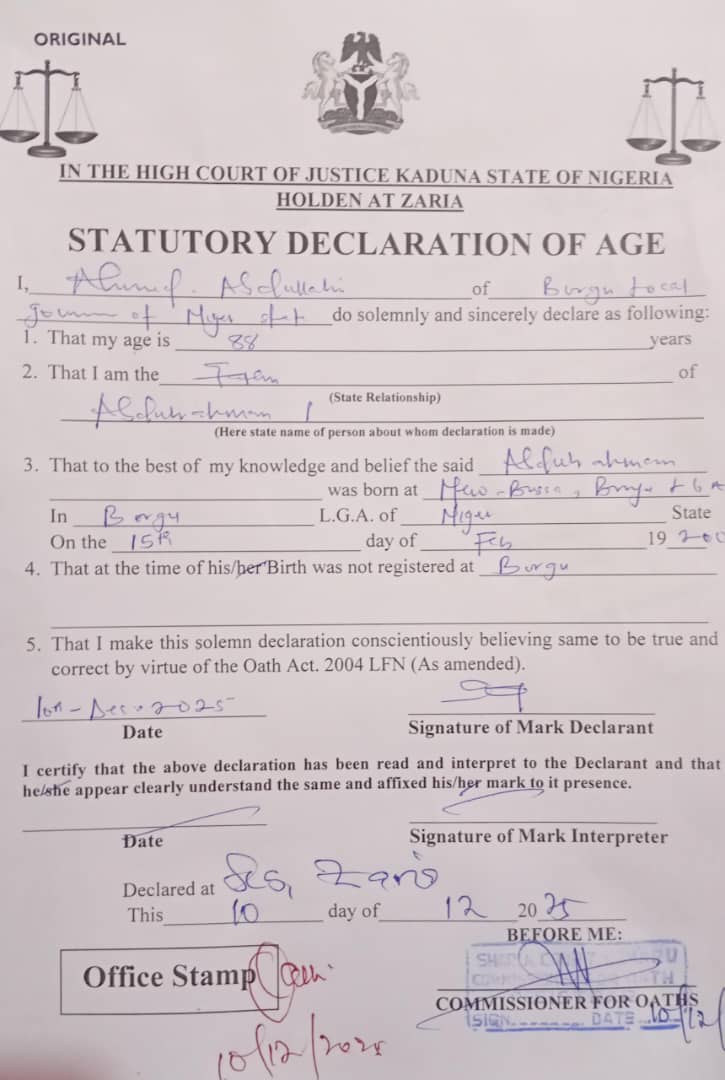 ORIGINAL
IN THE HIGH COURT OF JUSTICE KADUNA STATE OF NIGERIA
HOLDEN AT ZARIA
STATUTORY DECLARATION OF AGE
I, Ahmed Abdullahi of Borgu Local
of Niger do solemnly and sincerely declare as following:
1. That my age is 88 years
2. That I am the of
(State Relationship)
Abdulrahman
(Here state name of person about whom declaration is made)
3. That to the best of my knowledge and belief the said Abdulrahman
was born at New-Bussa, Borgu LGA
In Borgu L.G.A. of Niger State
On the 15th day of Feb 19 200
4. That at the time of his/her Birth was not registered at Borgu
5. That I make this solemn declaration conscientiously believing same to be true and
correct by virtue of the Oath Act. 2004 LFN (As amended).
10th - Dec. 2025
Date Signature of Mark Declarant
I certify that the above declaration has been read and interpret to the Declarant and that
he/she appear clearly understand the same and affixed his/her mark to it presence.
Date Signature of Mark Interpreter
Declared at Zaria
This 10 day of 12 20 25
BEFORE ME:
Office Stamp
COMMISSIONER FOR OATHS
SIGN. DATE 10/12/
10/12/2025